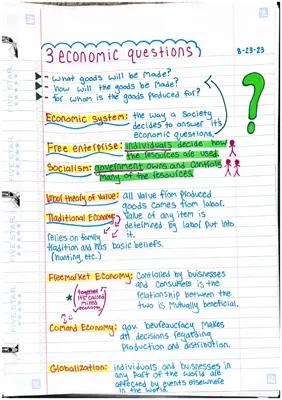 3 economic questions
8-23-23
- what goods will be made?
- how will the goods be made?
- for whom is the goods produced for?
Economic system: the way a society
decides to answer its
economic questions.
Free enterprise: individuals decide how
the resources are used.
Socialism: government owns and controls
many of the resources.
labor theory of value: All value from produced
goods comes from labor.
Traditional Economy: Value of any item is
determined by labor put into
it.
relies on family,
tradition and has basic beliefs.
(hunting, etc.)
Freemarket Economy: Controlled by buisnesses
and consumers is the
relationship between the
two is mutually beneficial.
together
it's called
mixed
economy
Comand Economy: gov. beureaucracy makes
all decisions regarding
production and distribution.
Globalization: individuals and businesses in
any part of the world are
affected by events elsewhere
in the world.
FIVE STAR
FIVE STAR
FIVE STAR